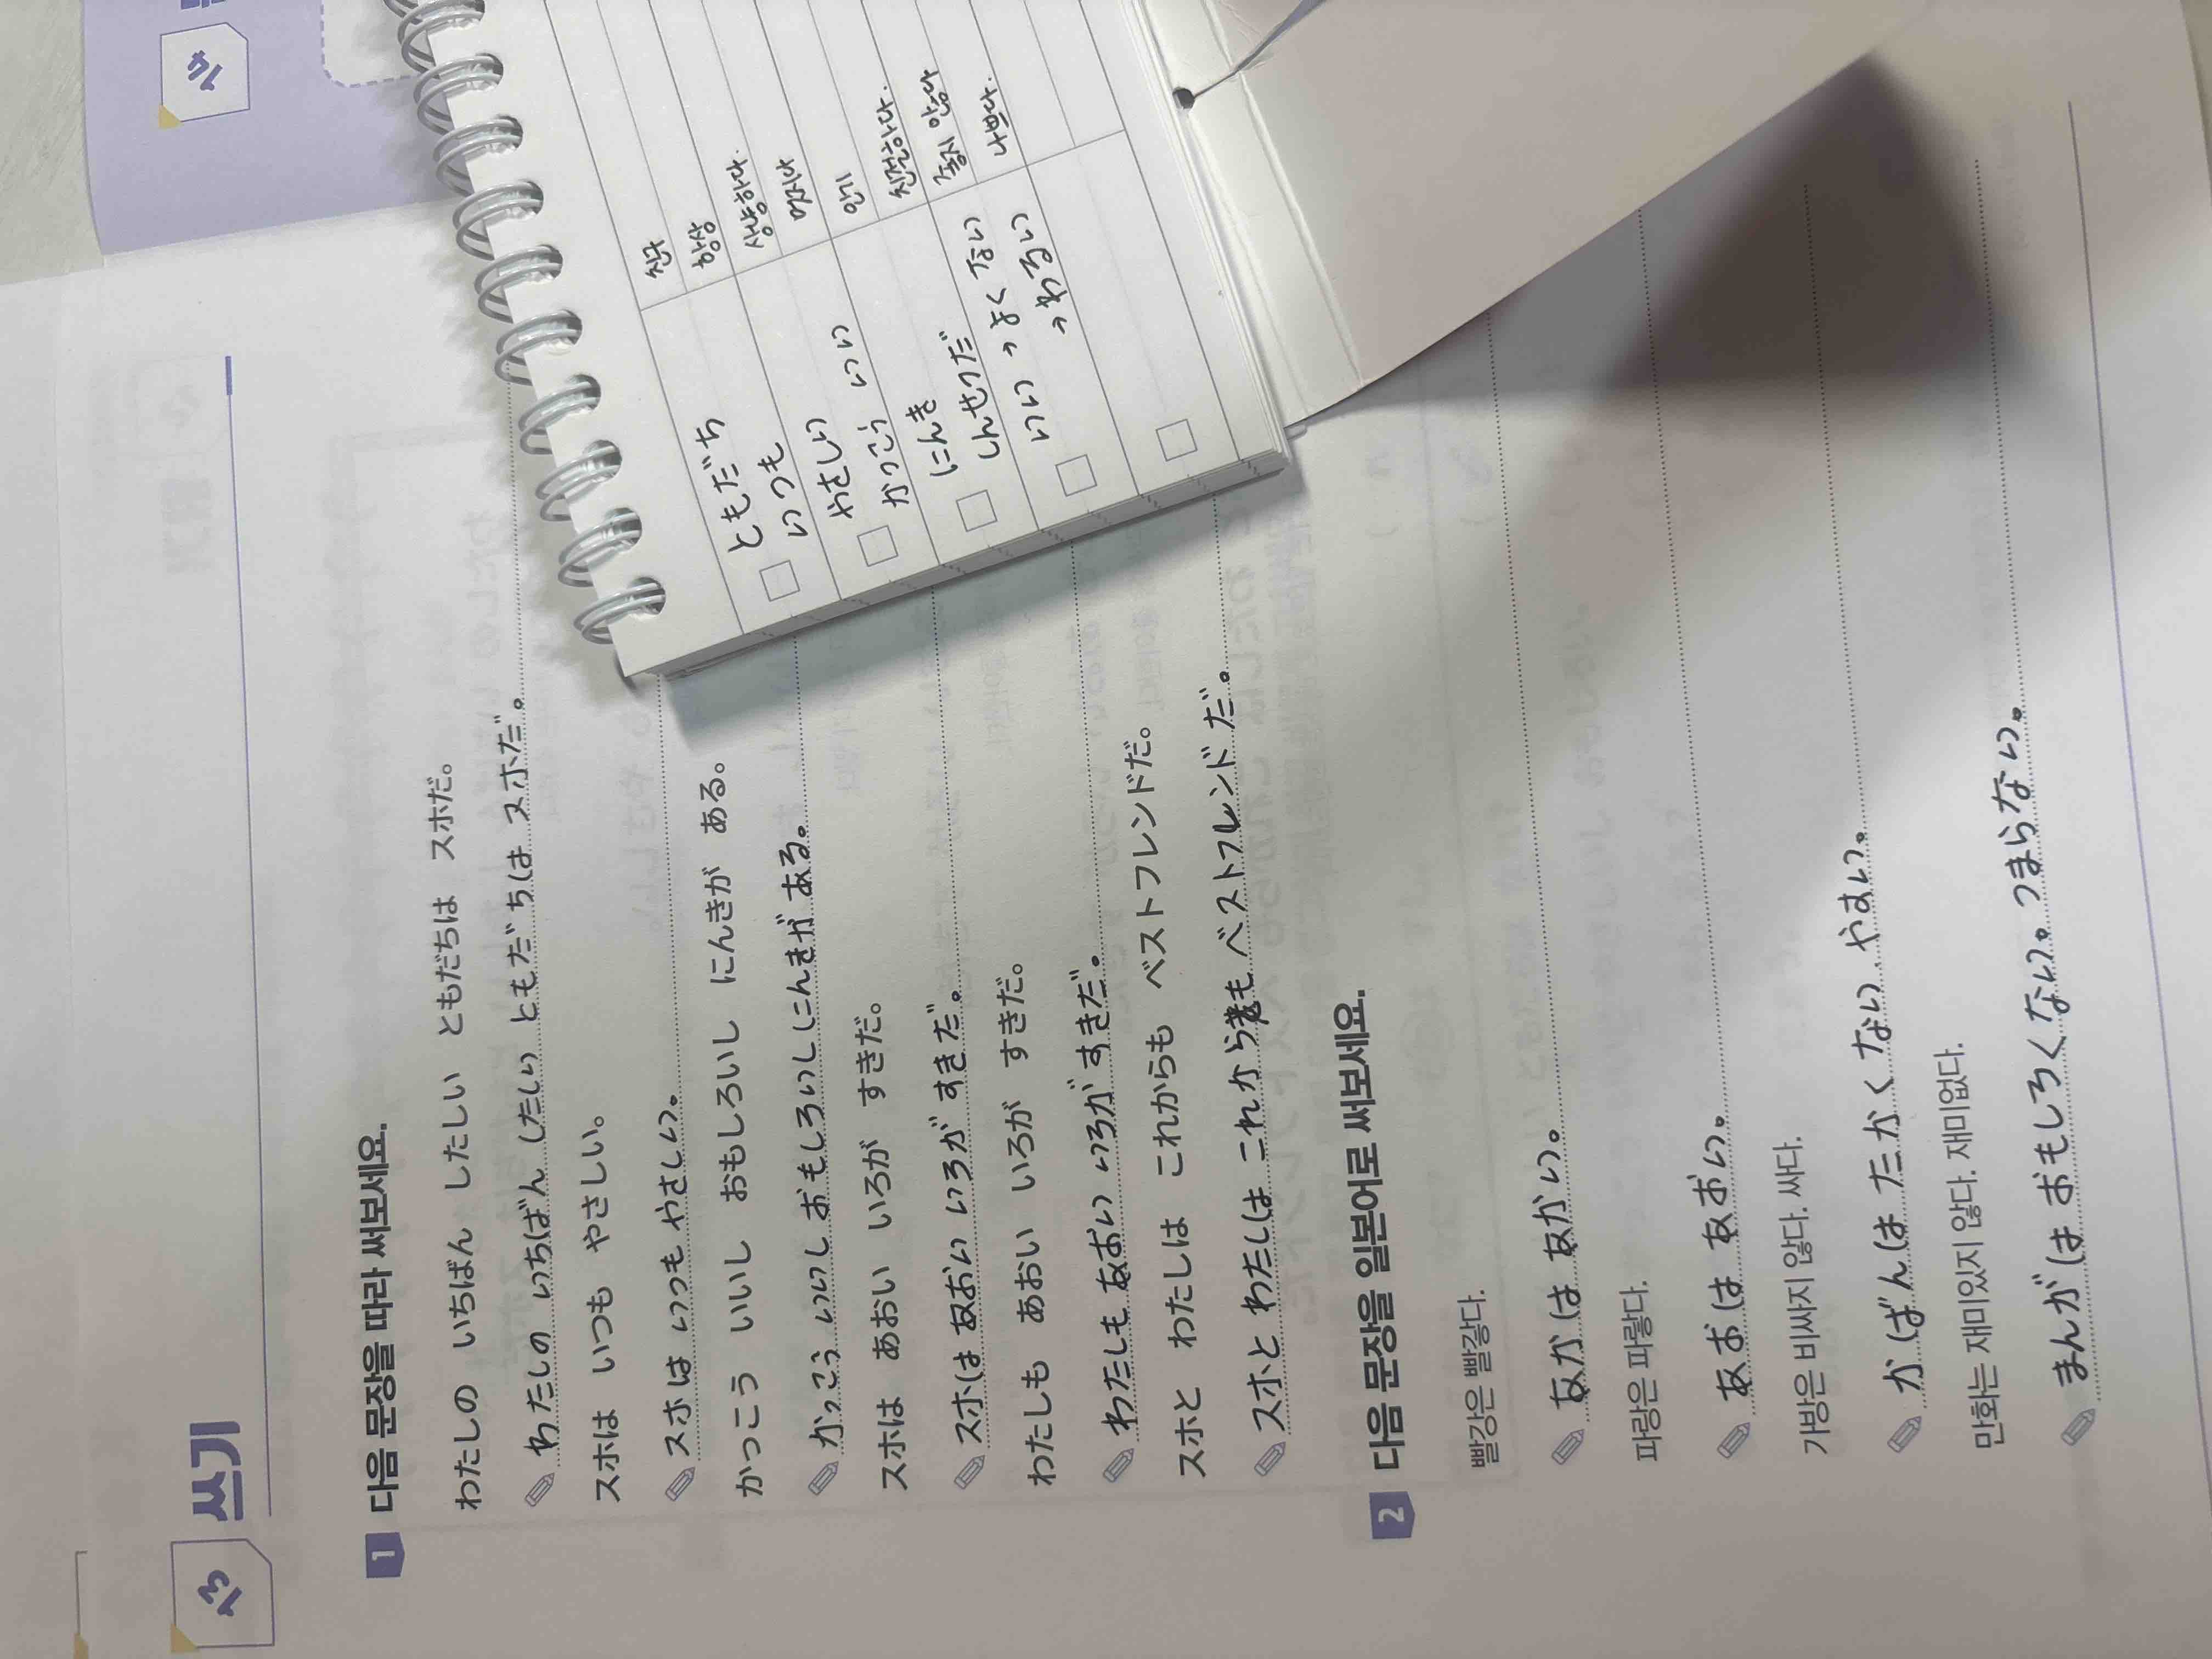 13 쓰기
1 다음 문장을 따라 써보세요.
わたしの いちばん したしい ともだちは スホだ。
わたしの いちばん したしい ともだちは スホだ。
スホは いつも やさしい。
スホは いつも やさしい。
かっこう いいし おもしろいし にんきが ある。
かっこう いいし おもしろいし にんきが ある。
スホは あおい いろが すきだ。
スホは あおい いろが すきだ。
わたしも あおい いろが すきだ。
わたしも あおい いろが すきだ。
スホと わたしは これからも ベストフレンドだ。
スホと わたしは これからも ベストフレンドだ。
2 다음 문장을 일본어로 써보세요.
빨강은 빨갛다.
あかは あかい。
파랑은 파랗다.
あおは あおい。
가방은 비싸지 않다. 싸다.
かばんは たかく ない. やすい。
만화는 재미있지 않다. 재미없다.
まんがは おもしろくない。つまらない。
14
ともだち 친구
いつも 항상
やさしい 상냥하다.
かっこう いい 멋지다
にんき 인기
しんせつだ 친절하다.
いい → よく ない 좋지 않다
→ わるい 나쁘다.